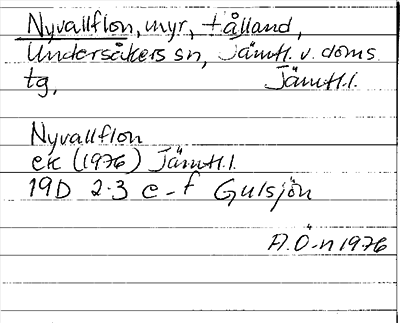 Nyvallflon, myr, + ålland,
Undersåkers sn, Jämtl. v. doms.
tg, Jämtl.l.
Nyvallflon
ek (1976) Jämtl.l.
19D 2-3 e-f Gulsjön
A.Ö-n 1976